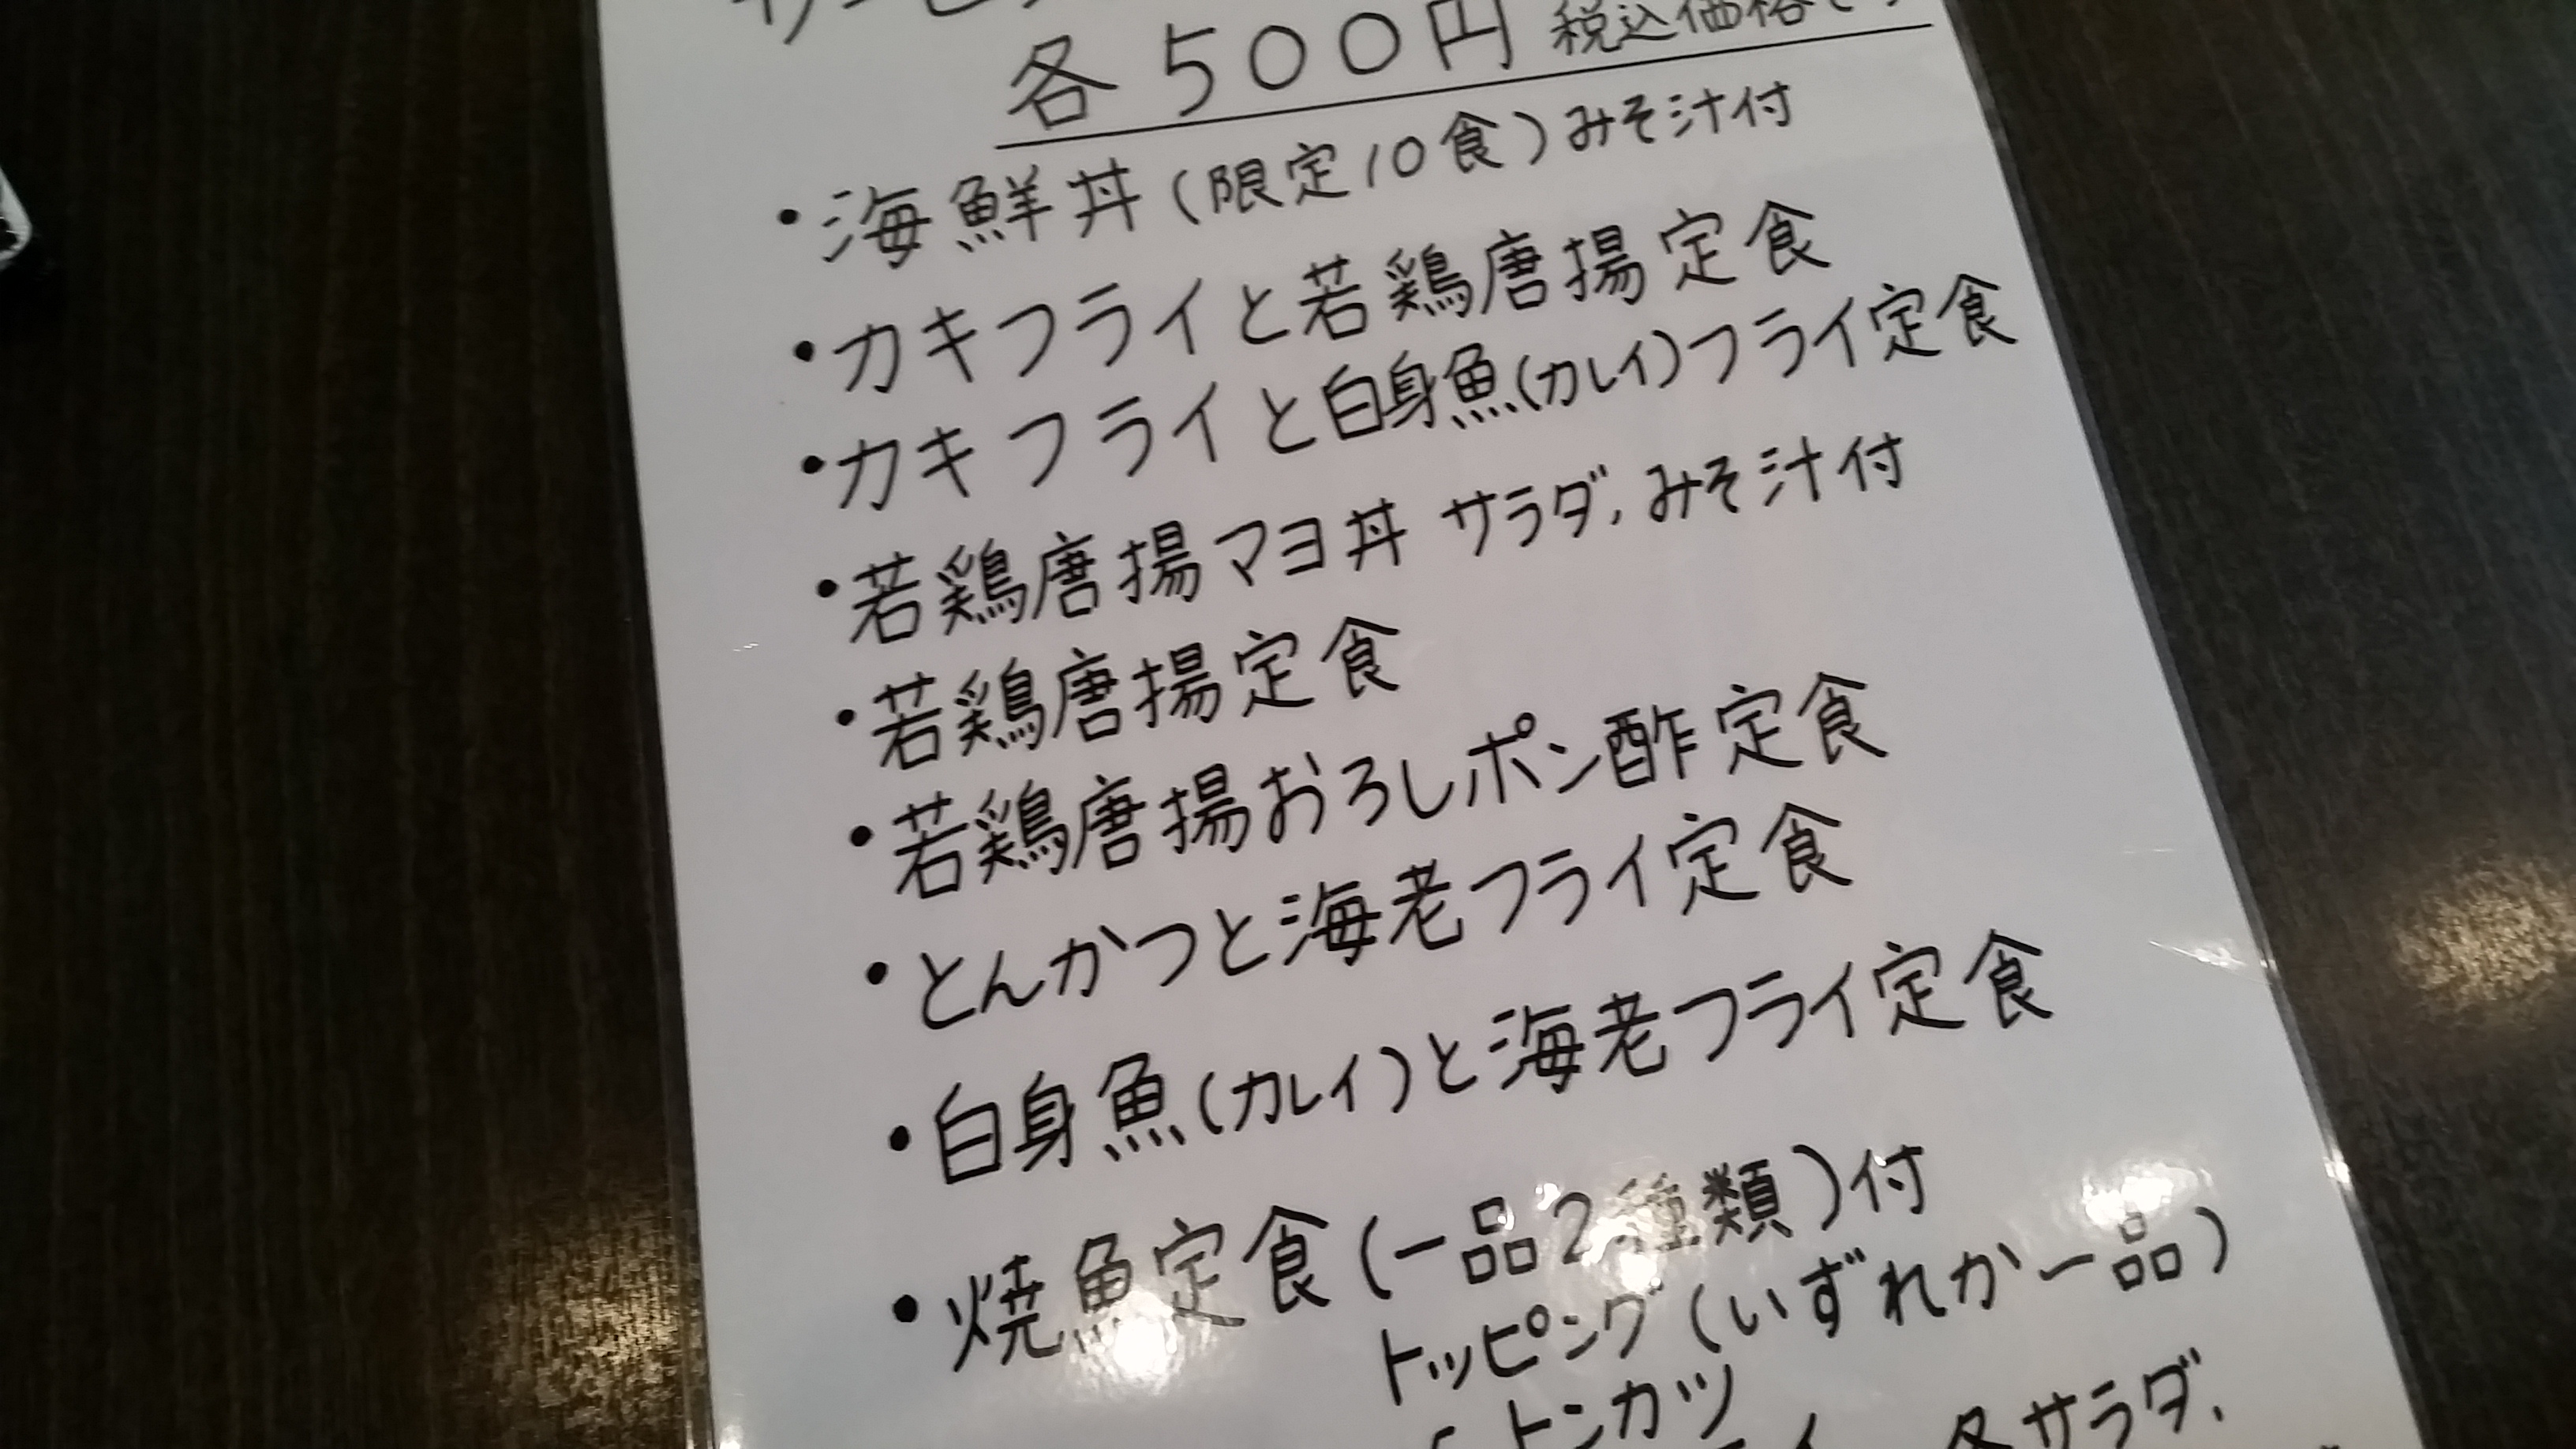 各500円 税込価格です
・海鮮丼(限定10食)みそ汁付
・カキフライと若鶏唐揚定食
・カキフライと白身魚(カレイ)フライ定食
・若鶏唐揚マヨ丼 サラダ、みそ汁付
・若鶏唐揚定食
・若鶏唐揚おろしポン酢定食
・とんかつと海老フライ定食
・白身魚(カレイ)と海老フライ定食
・焼魚定食(一品2種類)付
トッピング(いずれか一品)
トンカツ
各サラダ、